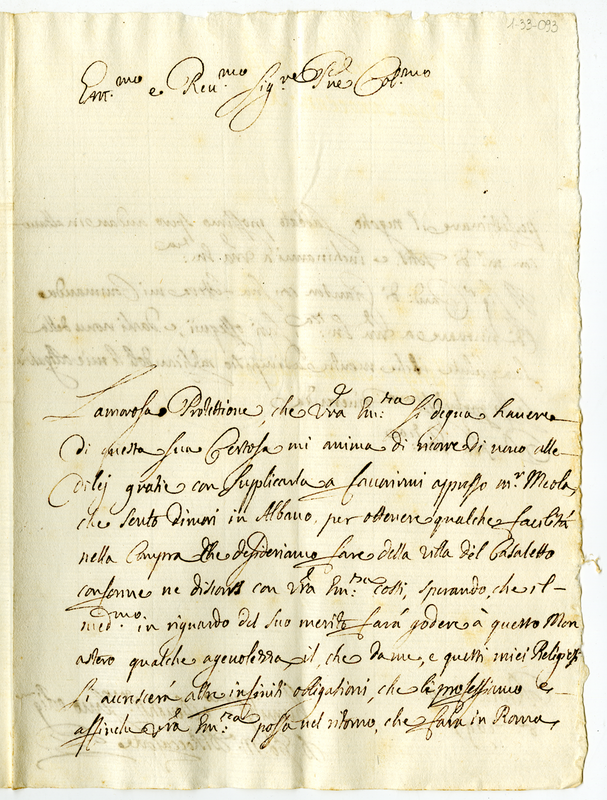 1-33-093
Em.mo e Reu.mo Sig.re Pne Col.mo
L'amorosa Protettione, che Vrã Em.za si degna hauere
di questa sua Certosa mi anima di ricorrer di nouo alle
di lej gratie con Supplicarla a fauorirmi appresso m.r Meola,
che Sento dimori in Albano, per ottenere qualche facilità
nella Compra che desideriamo fare della Villa del Casaletto
conforme ne discorsi con Vrã Em.za costi, sperando, che il
med.mo in riguardo del Suo merito farà godere à questo Mon
astero qualche ageuolezza, il, che da me, e questi miei Religiosi
si accrescerà altre infiniti obligationi, che li professiamo e
affinche Vrã Em.za possa nel ritorno, che farà in Roma,